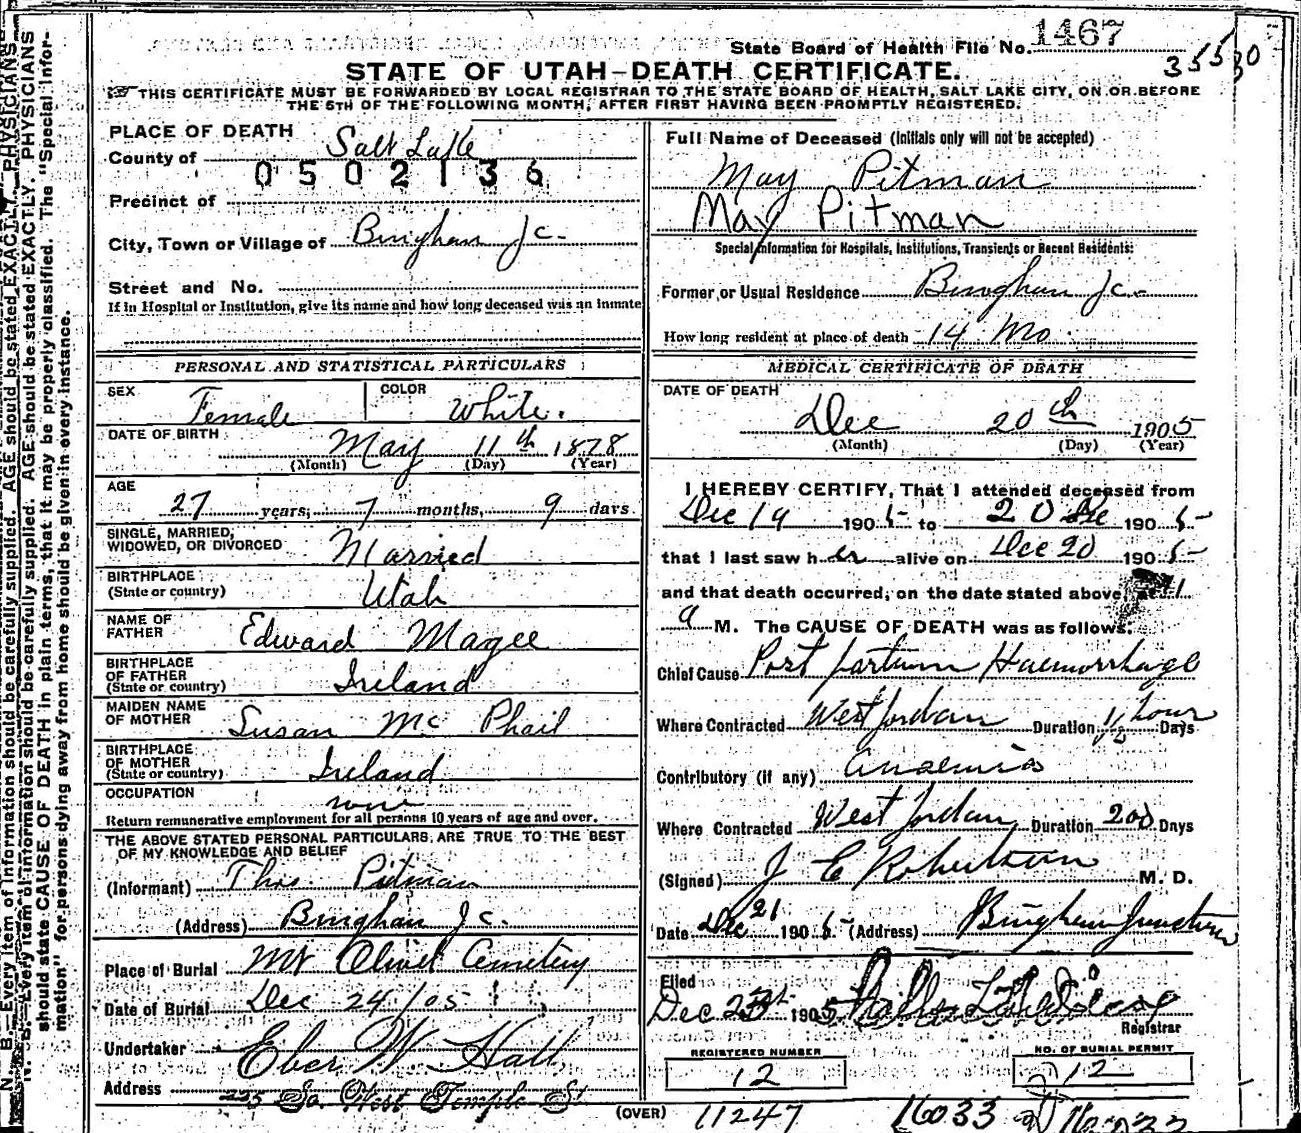 State Board of Health File No. 1467
35530
STATE OF UTAH-DEATH CERTIFICATE.
THIS CERTIFICATE MUST BE FORWARDED BY LOCAL REGISTRAR TO THE STATE BOARD OF HEALTH, SALT LAKE CITY, ON OR BEFORE
THE 5TH OF THE FOLLOWING MONTH, AFTER FIRST HAVING BEEN PROMPTLY REGISTERED.
PLACE OF DEATH
County of Salt Lake
0502136
Precinct of
City, Town or Village of Bingham Jc.
Street and No.
If in Hospital or Institution, give its name and how long deceased was an inmate
PERSONAL AND STATISTICAL PARTICULARS
SEX Female COLOR White.
DATE OF BIRTH May 11th 1878
(Month) (Day) (Year)
AGE
27 years, 7 months, 9 days
SINGLE, MARRIED,
WIDOWED, OR DIVORCED Married
BIRTHPLACE
(State or country) Utah
NAME OF
FATHER Edward Magee
BIRTHPLACE
OF FATHER
(State or country) Ireland
MAIDEN NAME
OF MOTHER Susan Mc Phail
BIRTHPLACE
OF MOTHER
(State or country) Ireland
OCCUPATION none
Return remunerative employment for all persons 10 years of age and over.
THE ABOVE STATED PERSONAL PARTICULARS ARE TRUE TO THE BEST
OF MY KNOWLEDGE AND BELIEF
(Informant) Thos. Pitman
(Address) Bingham Jc.
Place of Burial Mt Olivet Cemetery
Date of Burial Dec 24/05
Undertaker Eber W. Hall
Address So. West Temple St
Full Name of Deceased (Initials only will not be accepted)
May Pitman
May Pitman
Special Information for Hospitals, Institutions, Transients or Recent Residents:
Former or Usual Residence Bingham Jc.
How long resident at place of death 14 Mo.
MEDICAL CERTIFICATE OF DEATH
DATE OF DEATH
Dec 20th 1905
(Month) (Day) (Year)
I HEREBY CERTIFY, That I attended deceased from
Dec 19 1905 to 20 Dec 1905
that I last saw her alive on Dec 20 1905
and that death occurred, on the date stated above, at 1
a M. The CAUSE OF DEATH was as follows:
Chief Cause Post partum Haemorrhage
Where Contracted West Jordan Duration 1/2 hour Days
Contributory (if any) Anaemia
Where Contracted West Jordan Duration 200 Days
(Signed) J E Robertson M. D.
Date Dec 21 1905 (Address) Bingham Junction
Filed
Dec 1905
Registrar
REGISTERED NUMBER
12
NO. OF BURIAL PERMIT
12
(OVER) 11247 16033
N. B.—Every item of information should be carefully supplied. AGE should be stated EXACTLY. PHYSICIANS
should state CAUSE OF DEATH in plain terms, that it may be properly classified. The "Special Infor-
mation" for persons dying away from home should be given in every instance.